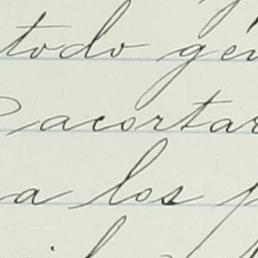 todo gén
acortar
a los p